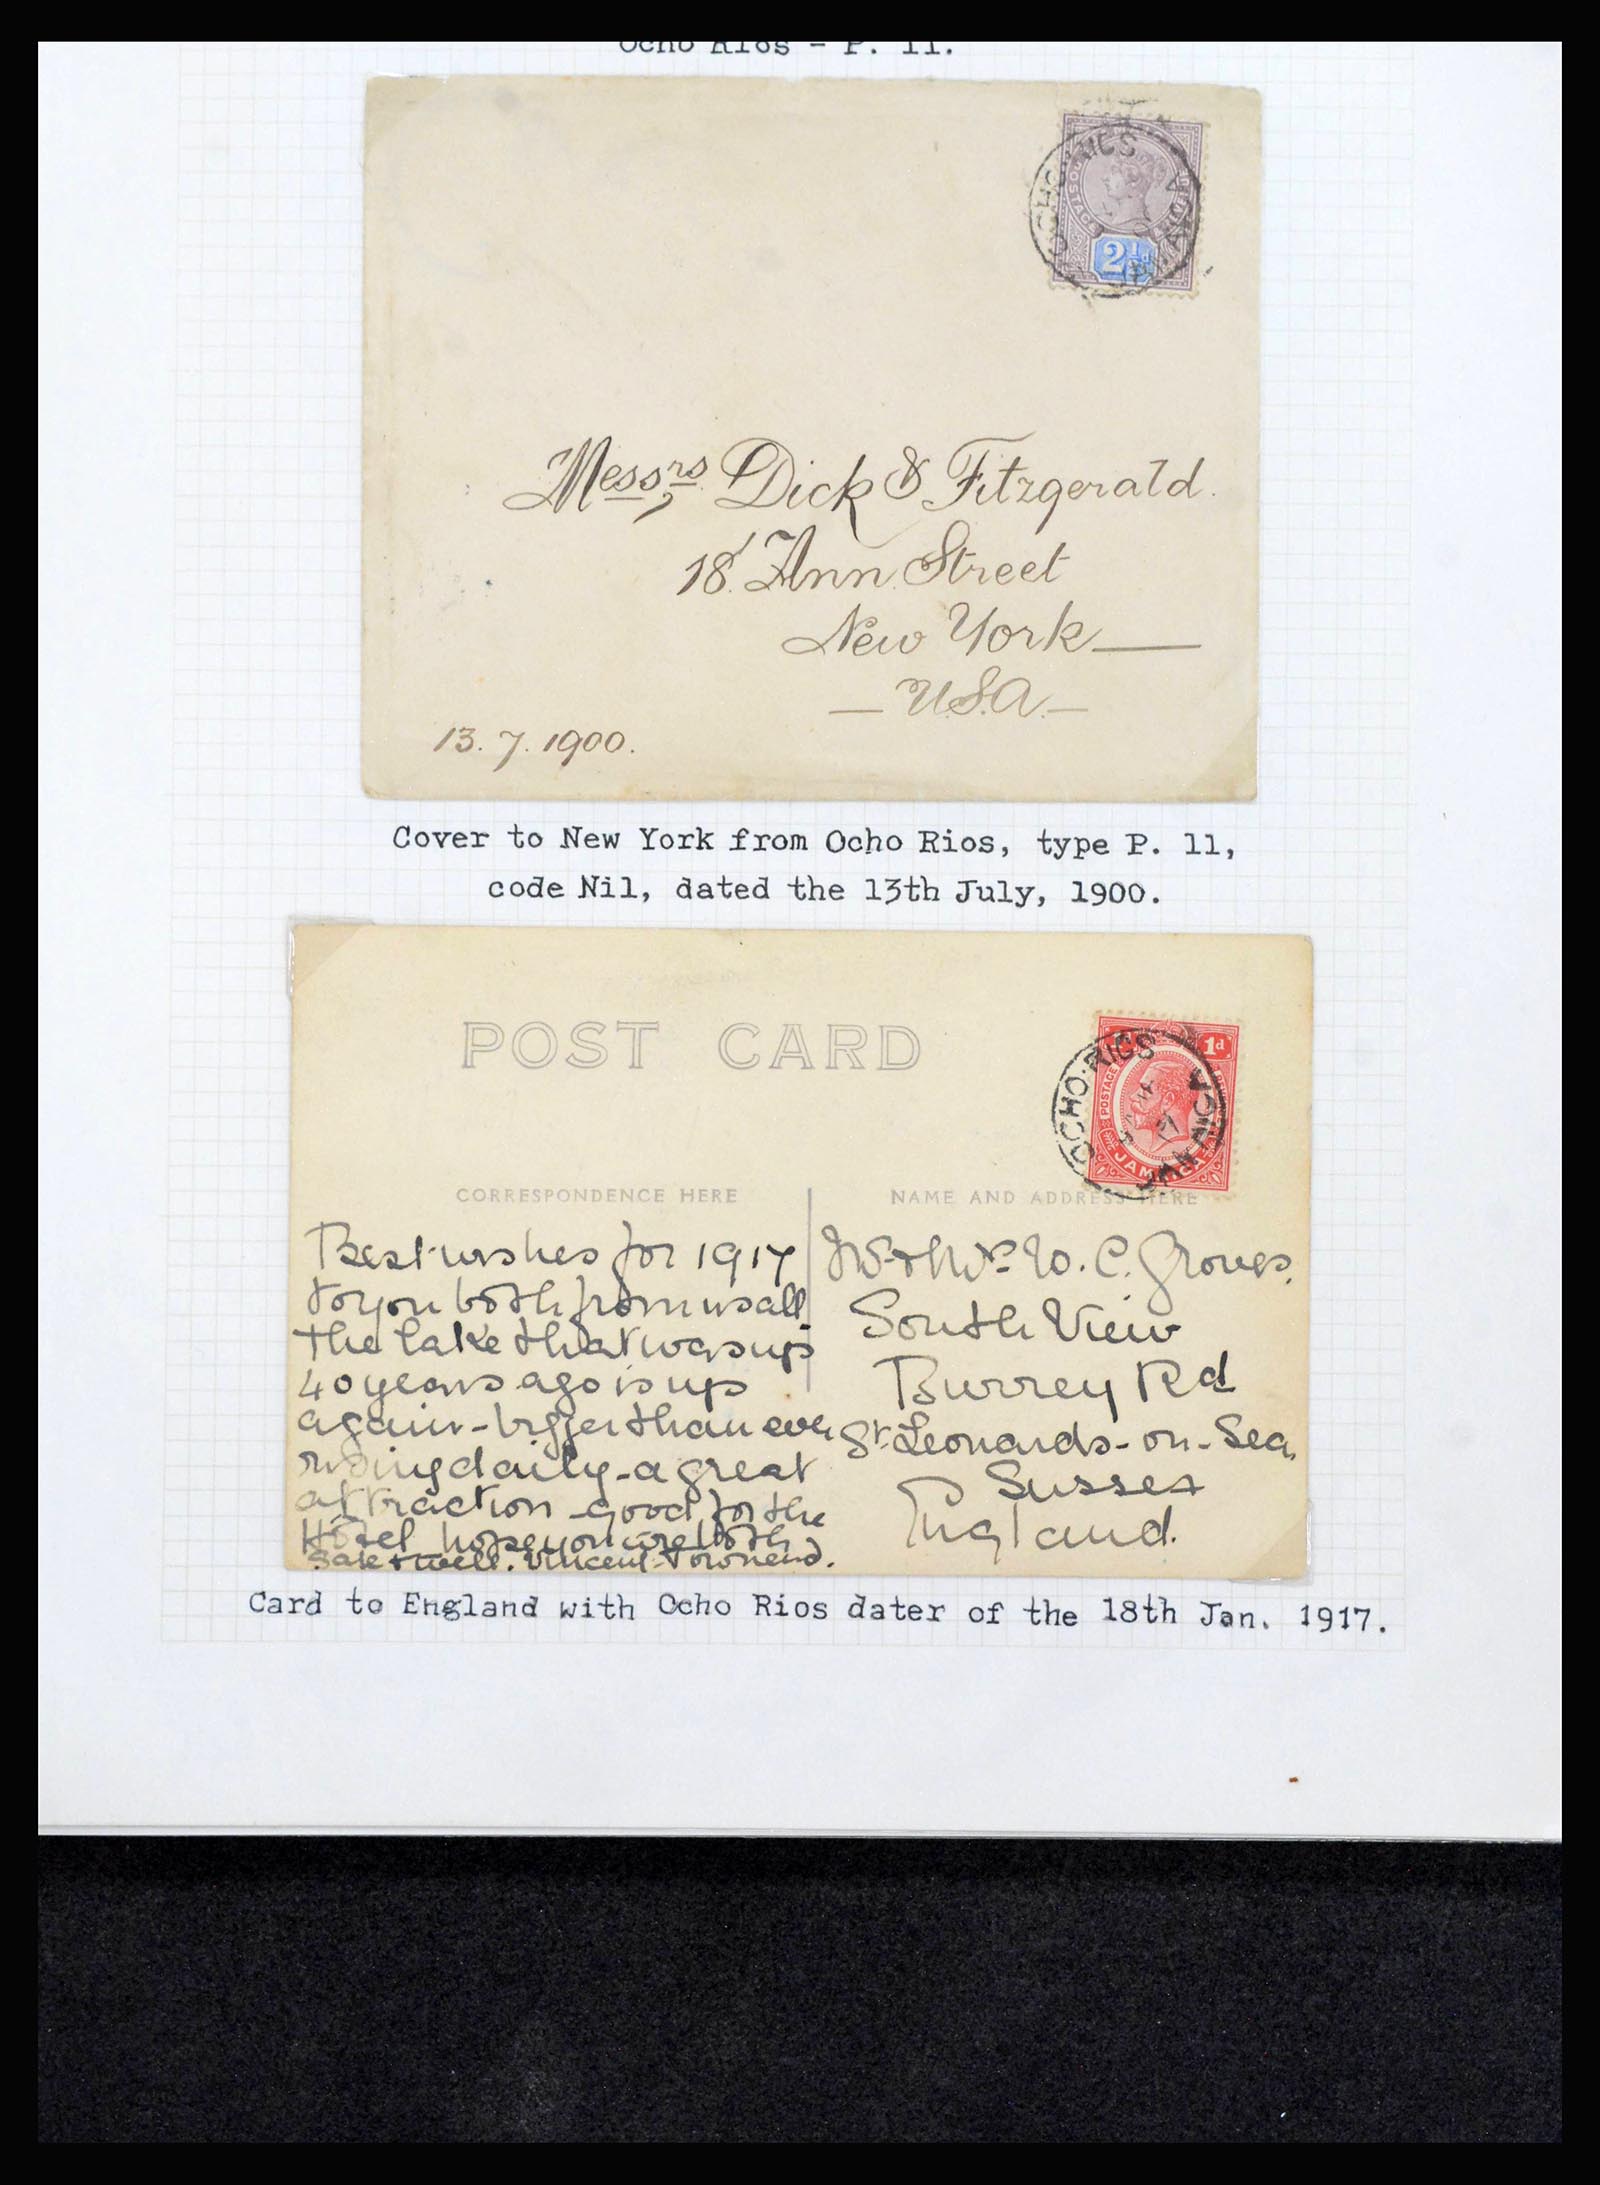 Ocho Rios - P. 11.
OCHO RIOS
JAMAICA
POSTAGE
2½d
Messrs, Dick & Fitzgerald.
18 Ann Street
New York
— U.S.A. —
13.7.1900.
Cover to New York from Ocho Rios, type P. 11,
code Nil, dated the 13th July, 1900.
POST CARD
1d
POSTAGE
JAMAICA
OCHO·RIOS
JAMAICA
CORRESPONDENCE HERE
NAME AND ADDRESS HERE
Best wishes for 1917
to you both from us all.
The lake that was up
40 years ago is up
again - bigger than ever
rising daily - a great
attraction - good for the
Hotel hope you are both
safe & well. Vincent Townend.
Mr & Mrs W. C. Groves.
South View
Burrey Rd
St. Leonards-on-Sea,
Sussex
England.
Card to England with Ocho Rios dater of the 18th Jan. 1917.